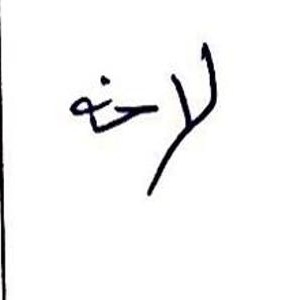 لاحنه